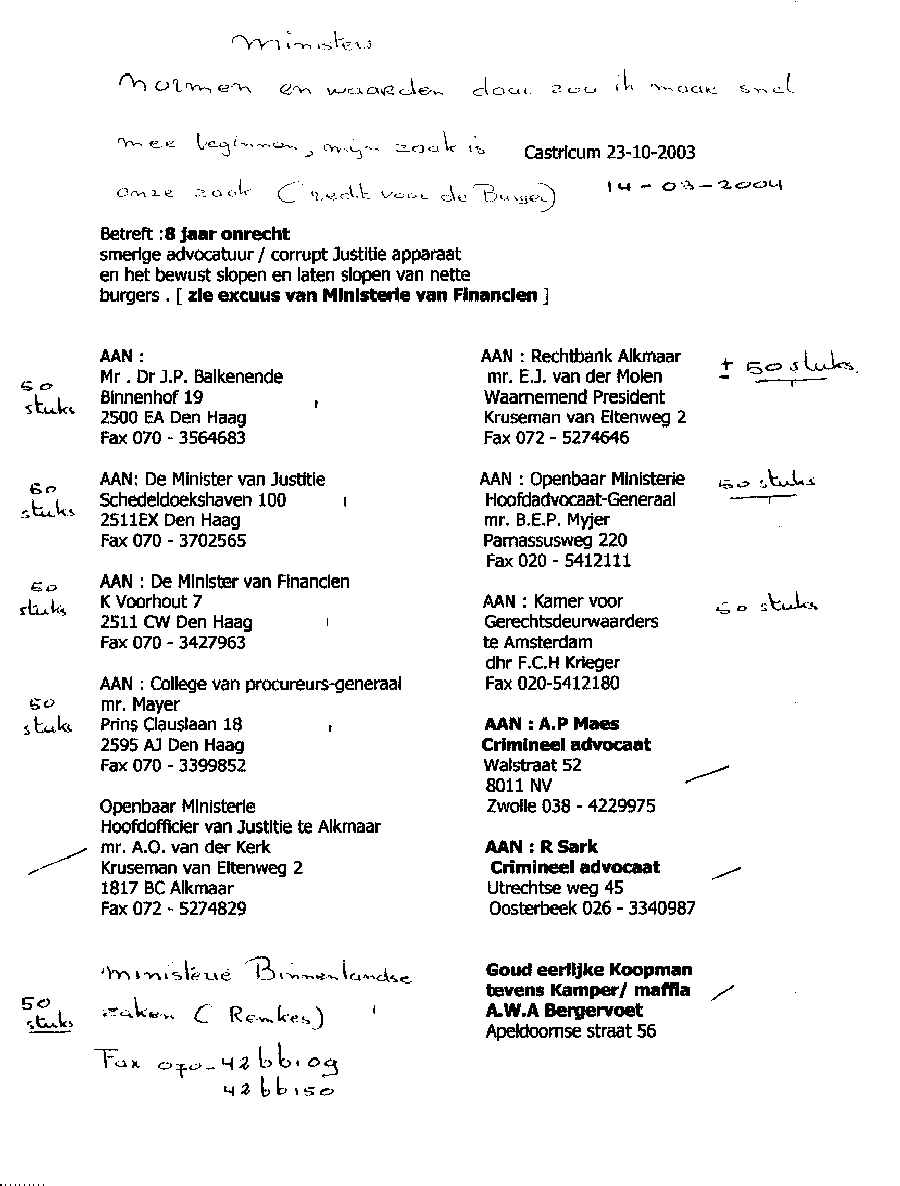 Ministers
Normen en waarden daar zou ik maar snel
mee beginnen, mijn zaak is
Castricum 23-10-2003
onze zaak (Recht voor de Burger)
14-03-2004
Betreft :8 jaar onrecht
smerige advocatuur / corrupt Justitie apparaat
en het bewust slopen en laten slopen van nette
burgers . [ zie excuus van Ministerie van Financien ]
AAN :
Mr . Dr J.P. Balkenende
Binnenhof 19
2500 EA Den Haag
Fax 070 - 3564683
50
stuks
AAN : Rechtbank Alkmaar
mr. E.J. van der Molen
Waarnemend President
Kruseman van Eltenweg 2
Fax 072 - 5274646
± 50 stuks.
AAN: De Minister van Justitie
Schedeldoekshaven 100
2511EX Den Haag
Fax 070 - 3702565
50
stuks
AAN : Openbaar Ministerie
Hoofdadvocaat-Generaal
mr. B.E.P. Myjer
Parnassusweg 220
Fax 020 - 5412111
50 stuks
AAN : De Minister van Financien
K Voorhout 7
2511 CW Den Haag
Fax 070 - 3427963
50
stuks
AAN : Kamer voor
Gerechtsdeurwaarders
te Amsterdam
dhr F.C.H Krieger
Fax 020-5412180
50 stuks
AAN : College van procureurs-generaal
mr. Mayer
Prins Clauslaan 18
2595 AJ Den Haag
Fax 070 - 3399852
50
stuks
AAN : A.P Maes
Crimineel advocaat
Walstraat 52
8011 NV
Zwolle 038 - 4229975
Openbaar Ministerie
Hoofdofficier van Justitie te Alkmaar
mr. A.O. van der Kerk
Kruseman van Eltenweg 2
1817 BC Alkmaar
Fax 072 - 5274829
AAN : R Sark
Crimineel advocaat
Utrechtse weg 45
Oosterbeek 026 - 3340987
Ministerie Binnenlandse
zaken ( Remkes)
Fax 070-4266109
4266150
50
stuks
Goud eerlijke Koopman
tevens Kamper/ maffia
A.W.A Bergervoet
Apeldoornse straat 56